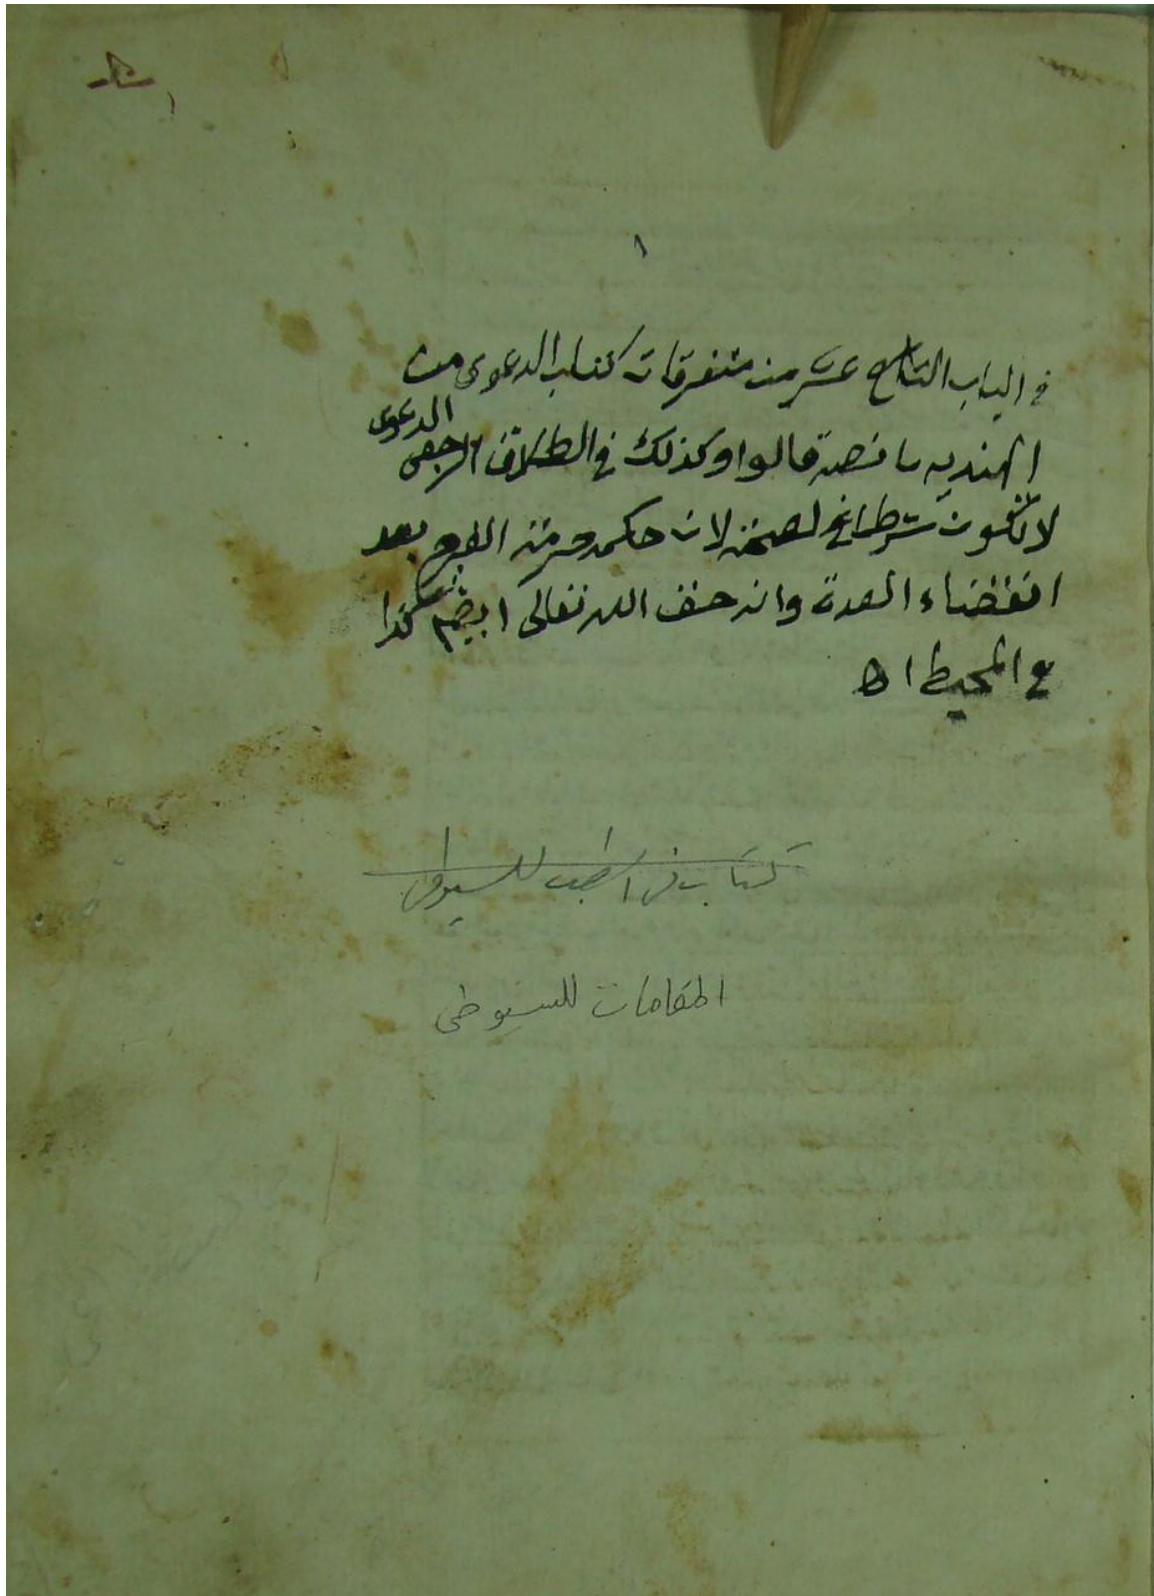 ١
في الباب التاسع عشر من متفرقات كتاب الدعوى من
الهنديه ما نصه قالوا وكذلك في الطلاق الرجعي الدعوى
لا تكون شرطا في لصحته لان حكمه حرمة الفرج بعد
انقضاء العدة وانه حق الله تعالى ايضا كذا
في المحيط اه
كتاب في الطب للسيوطي
المقامات للسيوطي